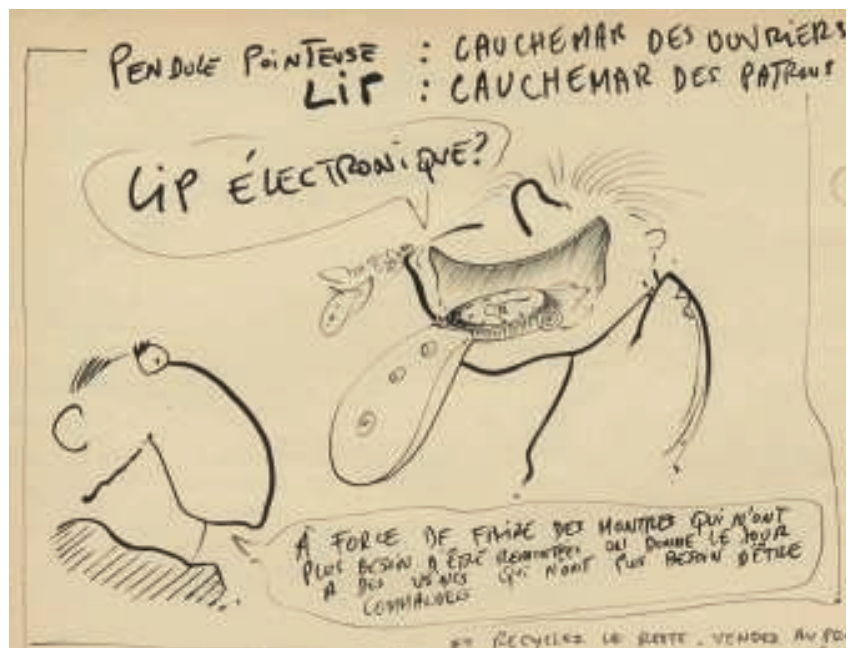 PENDULE POINTEUSE : CAUCHEMAR DES OUVRIERS
LIP : CAUCHEMAR DES PATRONS
LIP ÉLECTRONIQUE?
À FORCE DE FAIRE DES MONTRES QUI N'ONT
PLUS BESOIN D'ÊTRE REMONTÉES ON DONNE LE JOUR
A DES USINES QUI N'ONT PLUS BESOIN D'ÊTRE
COMMANDÉES
ET RECYCLEZ LE RESTE. VENDEZ AU